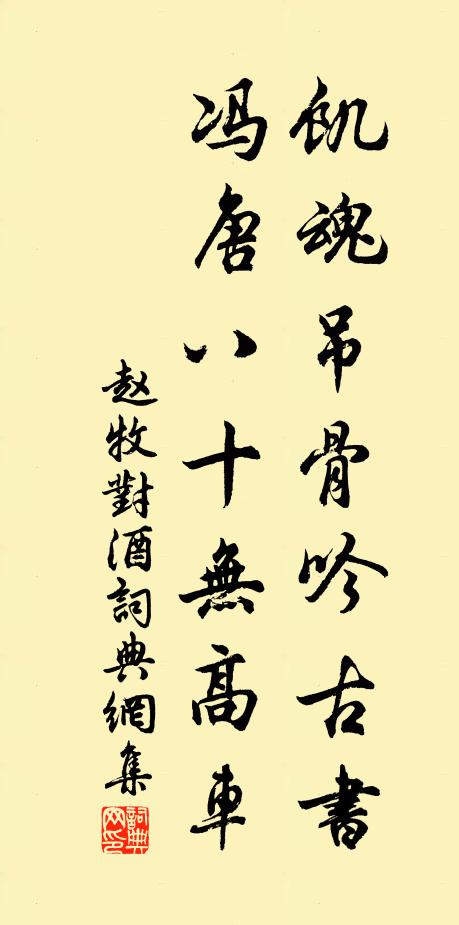 飢魂吊骨吟古書
冯唐八十無高車
赵牧對酒詞典網集
詞典网印